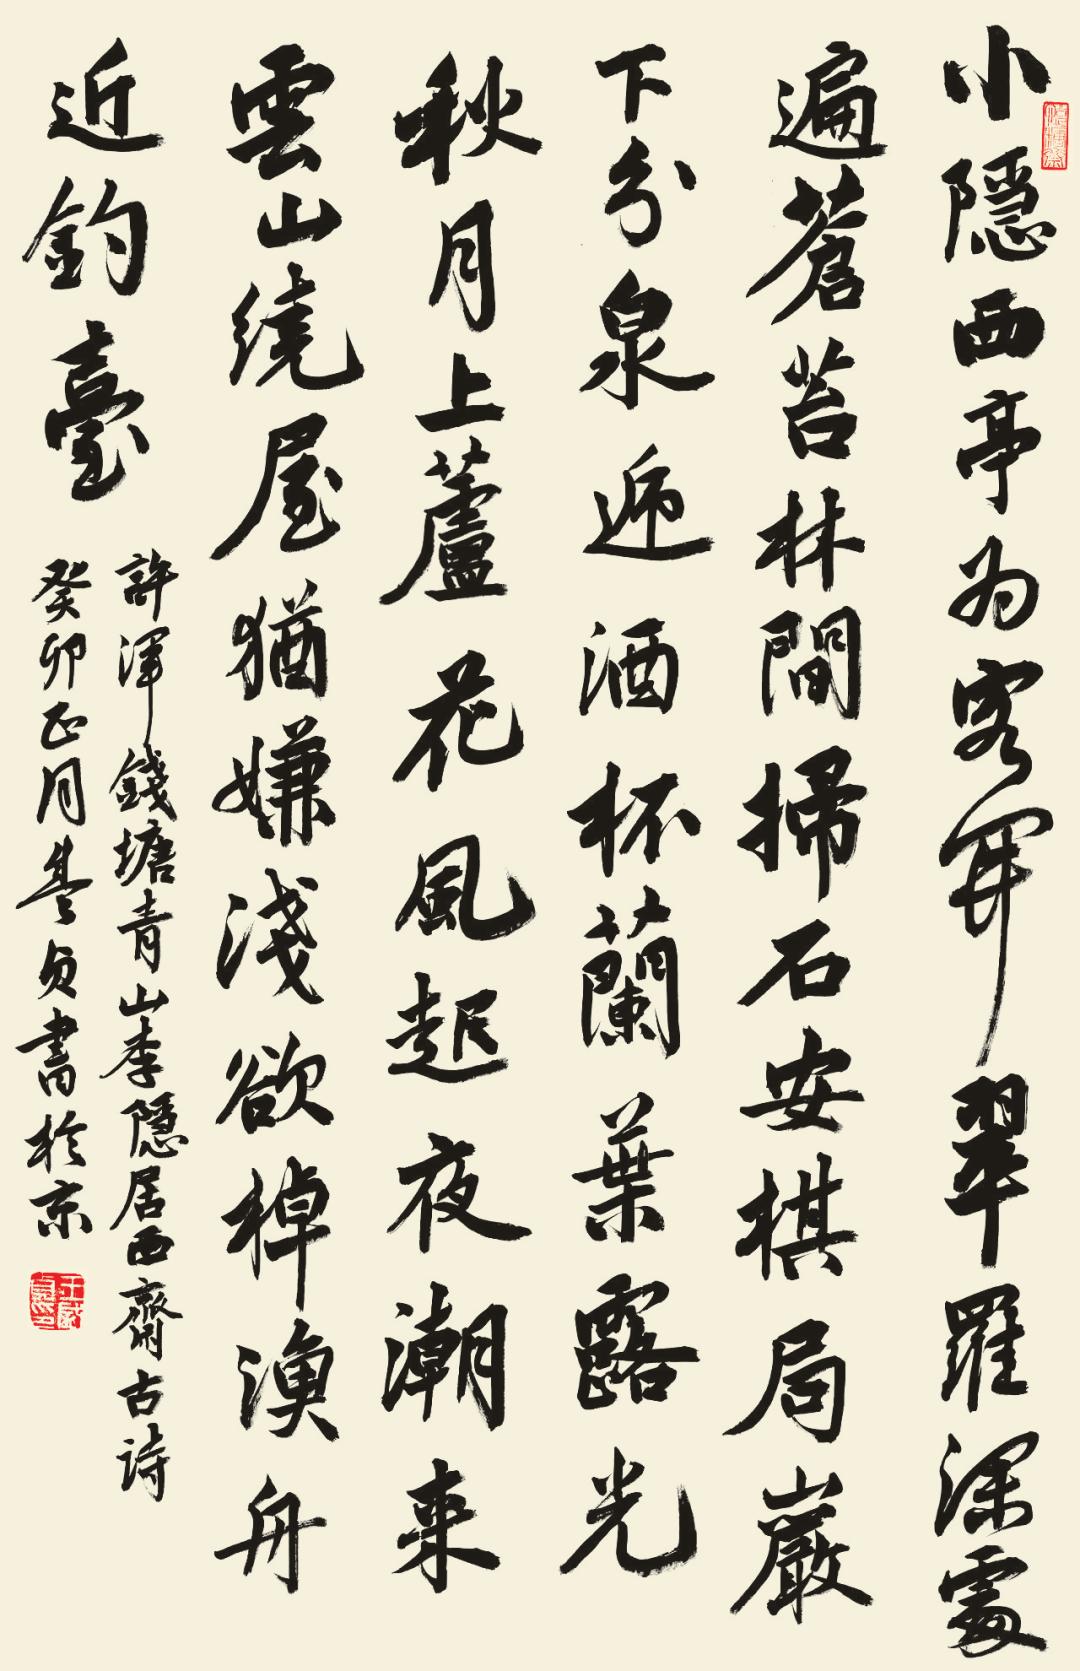 小隱西亭为客開翠羅深處
遍蒼苔林間掃石安棋局巖
下分泉遞酒杯蘭葉露光
秋月上蘆花風起夜潮来
雲山繞屋猶嫌淺欲棹漁舟
近釣臺
許渾錢塘青山李隱居西齋古詩
癸卯正月
貞書於京